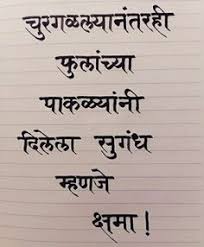 चुरगळल्यानंतरही
फुलांच्या
पाकळ्यांनी
दिलेला सुगंध
म्हणजे
क्षमा !